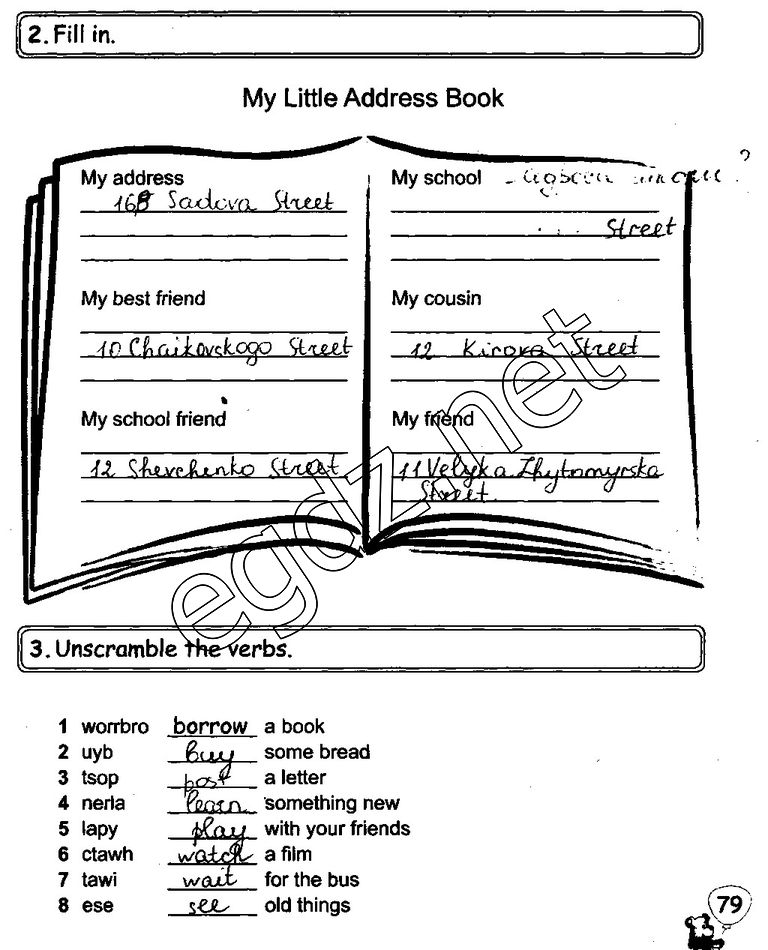 2. Fill in.
My Little Address Book
My address
168 Sadova Street
My best friend
10 Chaikovskogo Street
My school friend
12 Shevchenko Street
My school
?
Street
My cousin
12 Kirova Street
My friend
11 Velyka Zhytomyrska
Street.
egdz.net
3. Unscramble the verbs.
1 worrbro borrow a book
2 uyb buy some bread
3 tsop post a letter
4 nerla learn something new
5 lapy play with your friends
6 ctawh watch a film
7 tawi wait for the bus
8 ese see old things
79